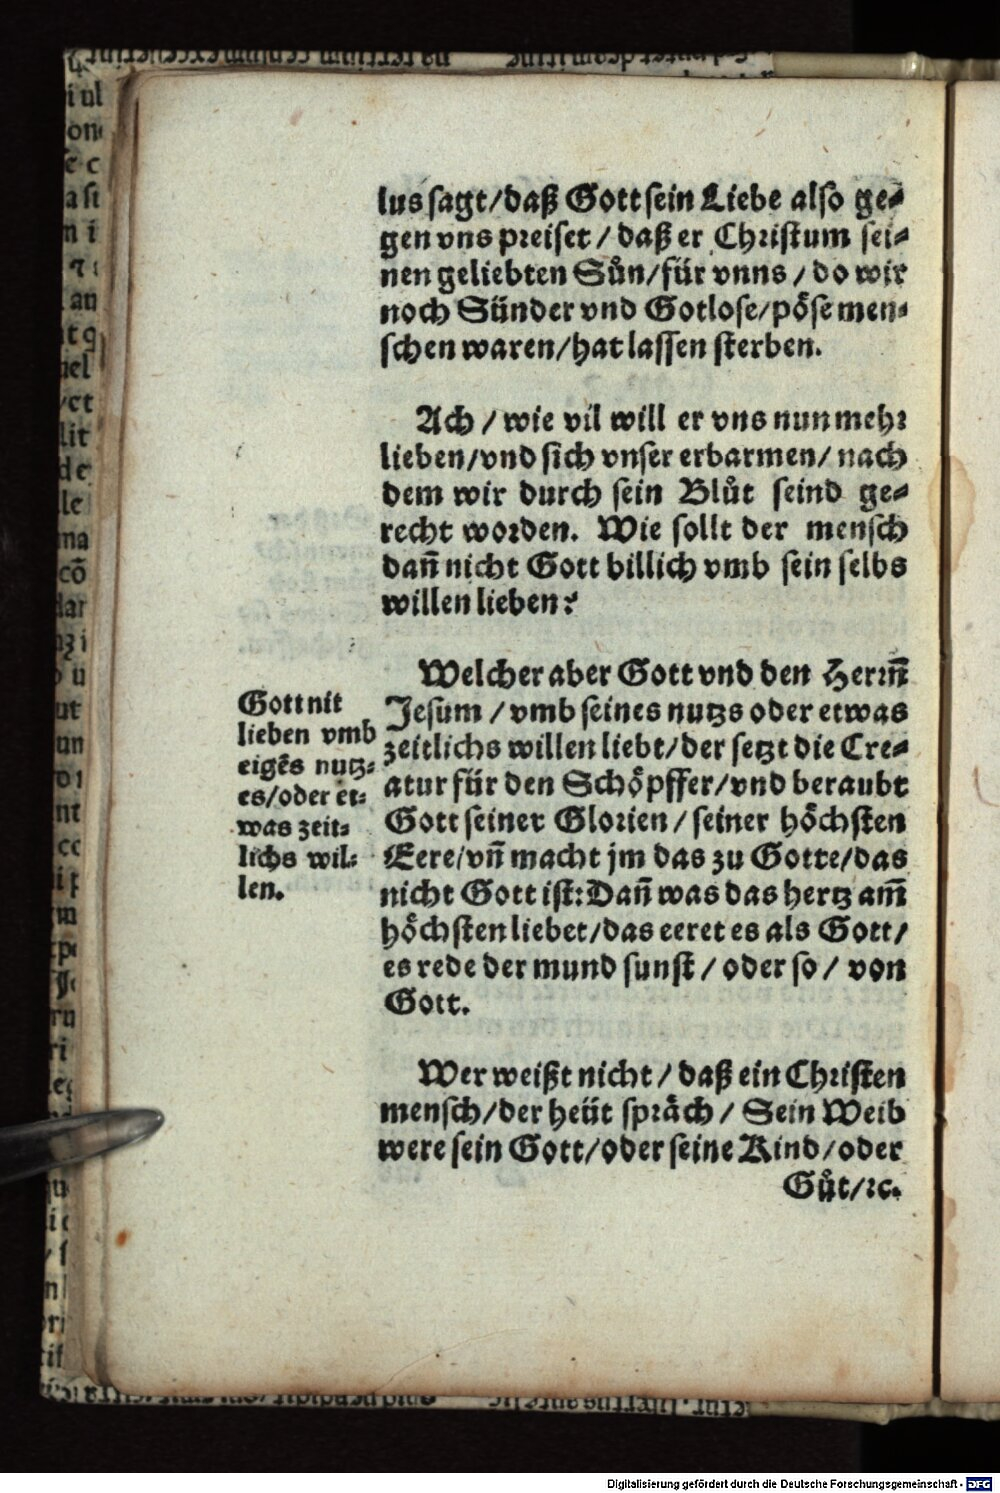 lus sagt/daß Gott sein Liebe also ge⸗
gen vns preiset / daß er Christum sei⸗
nen geliebten Sůn/für vnns / do wir
noch Sünder vnd Gotlose/pöse men⸗
schen waren/hat lassen sterben.
Ach / wie vil will er vns nun mehr
lieben/vnd sich vnser erbarmen/ nach
dem wir durch sein Blůt seind ge⸗
recht worden. Wie sollt der mensch
dañ nicht Gott billich vmb sein selbs
willen lieben?
Welcher aber Gott vnd den Herrñ
Jesum / vmb seines nutzs oder etwas
zeitlichs willen liebt/der setzt die Cre⸗
atur für den Schöpffer/vnd beraubt
Gott seiner Glorien/ seiner höchsten
Eere/vñ macht jm das zu Gotte/das
nicht Gott ist: Dañ was das hertz am̃
höchsten liebet/das eeret es als Gott/
es rede der mund sunst / oder so / von
Gott.
Gott nit
lieben vmb
eigẽs nutz⸗
es/oder et⸗
was zeit⸗
lichs wil⸗
len.
Wer weißt nicht / daß ein Christen
mensch/der heüt spräch / Sein Weib
were sein Gott/oder seine Kind/oder
Gůt/ꝛc.
Digitalisierung gefördert durch die Deutsche Forschungsgemeinschaft - DFG